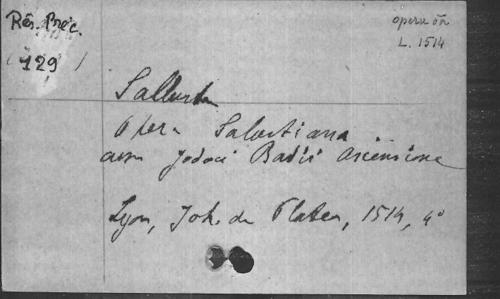 Rés. Préc.
129
opera õn
L. 1514
Sallust
Opera Salustiana
cum Jodoci Badii Ascensione
Lyon, Joh. de Platea, 1514, 4°